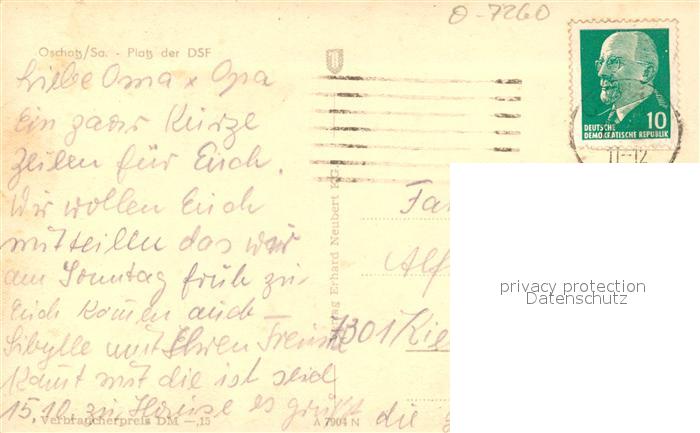 O-7260
Oschatz/Sa. - Platz der DSF
Liebe Oma x Opa
Ein paar Kurze
Zeilen für Euch.
Wir wollen Euch
mitteillen das wir
am Sonntag früh zu
Euch kommen auch
Sibylle mit Ihren Freund
kommt mit die ist seid
15,10. zu Hause es grüßt die
Verbraucherpreis DM —,15
A 7904 N
Verlag Erhard Neubert KG
Fa
Alf
7301 Kie
10
DEUTSCHE
DEMOKRATISCHE REPUBLIK
11-12
privacy protection
Datenschutz